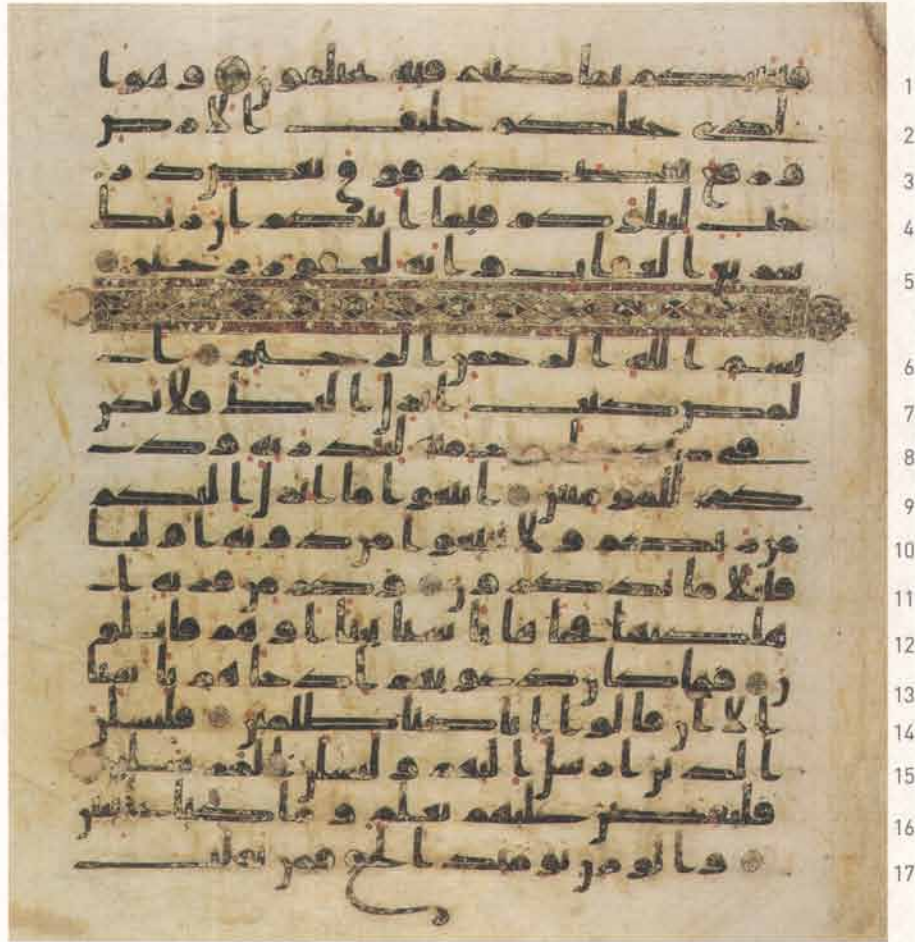 فينبئكم بما كنتم فيه تختلفون وهو ا 1
لذي جعلكم خلئف الارض 2
ورفع بعضكم فوق بعض در 3
جت ليبلوكم فيما اتيكم ان ربك 4
سريع العقاب وانه لغفور رحيم 5
بسم الله الرحمن الرحيم ا 6
لمص كتب انزل اليك فلا يكن 7
في صدرك حرج منه لتنذر به وذ 8
كرى للمومنين اتبعوا ما انزل اليكم 9
من ربكم ولا تتبعوا من دونه اوليا 10
قليلا ما تذكرون وكم من قرية ا 11
هلكنها فجاها باسنا بيتا او هم قايلو 12
ن فما كان دعويهم اذ جاهم باسنا 13
الا ان قالوا انا كنا ظلمين فلنسلن 14
الذين ارسل اليهم ولنسلن المرسلين 15
فلنقصن عليهم بعلم وما كنا غايبين 16
والوزن يومئذ الحق فمن ثقلت 17